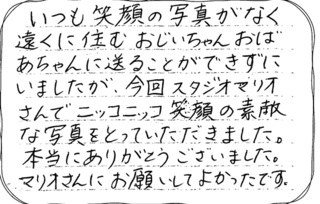 いつも笑顔の写真がなく
遠くに住むおじいちゃんおば
あちゃんに送ることができずに
いましたが、今回スタジオマリオ
さんでニッコニッコ笑顔の素敵
な写真をとっていただきました。
本当にありがとうございました。
マリオさんにお願いしてよかったです。